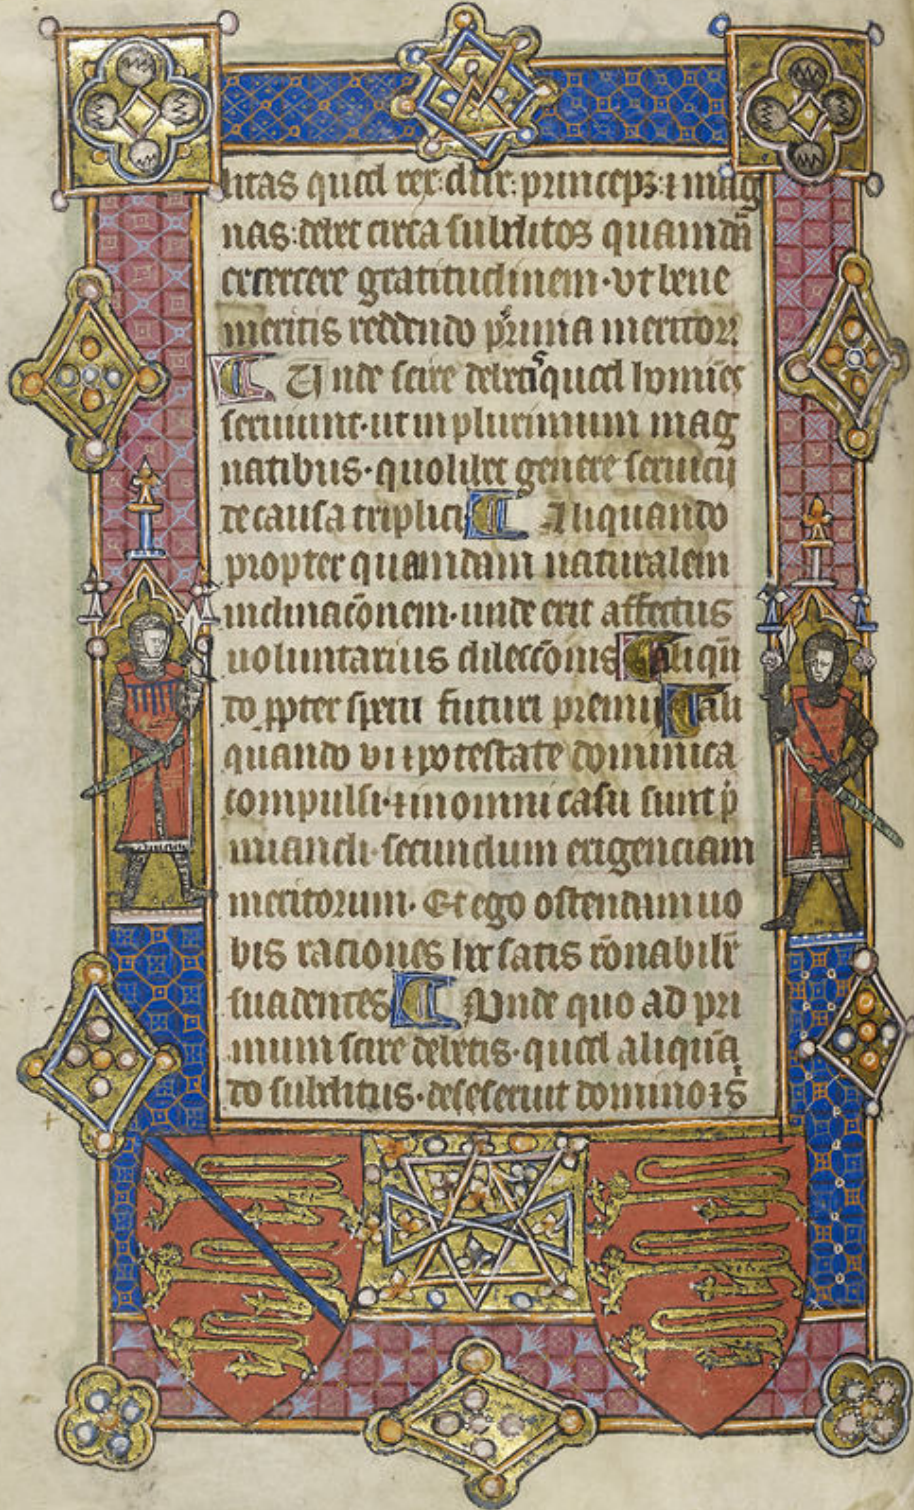 litas quod rex: dux: princeps: ⁊ mag
nas: debet circa subditos quamdā
excercere gratitudinem· vt bene
meritis reddendo p̄mia meritor
Unde scire debetis quod homīes
seruiunt· ut in plurimum mag
natibus· quolibet genere seruicij
de causa triplici Aliquando
propter quamdam naturalem
inclinacōnem· unde erit affectus
uoluntarius dileccōnis Aliqn̄
do ꝓpter spem futuri premij Ali
quando vi ⁊ potestate dominica
compulsi· ⁊ in omni casu sunt p̄
miandi· secundum exigenciam
meritorum· Et ego ostendam uo
bis raciones hec satis rōnabilīt
suadentes Unde quo ad pri
mum scire debetis· quod aliquā
do subditus· deseseruit domino ⁊ s̄